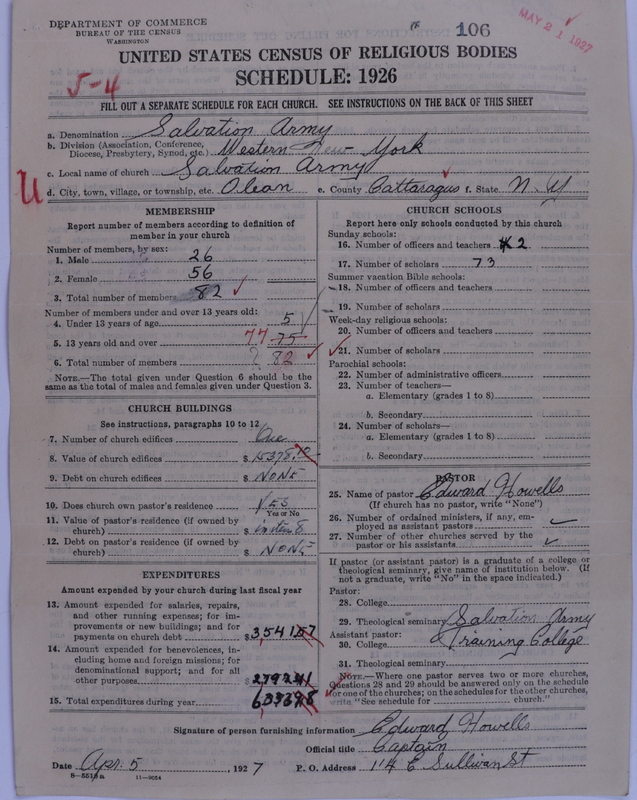 DEPARTMENT OF COMMERCE
BUREAU OF THE CENSUS
WASHINGTON
106
MAY 21 1927
UNITED STATES CENSUS OF RELIGIOUS BODIES
SCHEDULE: 1926
5-4
FILL OUT A SEPARATE SCHEDULE FOR EACH CHURCH. SEE INSTRUCTIONS ON THE BACK OF THIS SHEET
a. Denomination Salvation Army
b. Division (Association, Conference, Diocese, Presbytery, Synod, etc.) Western New York
c. Local name of church Salvation Army
U
d. City, town, village, or township, etc. Olean e. County Cattaragus f. State N. Y
MEMBERSHIP
Report number of members according to definition of
member in your church
Number of members, by sex:
1. Male 26
2. Female 56
3. Total number of members 82
Number of members under and over 13 years old:
4. Under 13 years of age 5
5. 13 years old and over 77 75
6. Total number of members ? 82
NOTE.—The total given under Question 6 should be the
same as the total of males and females given under Question 3.
CHURCH BUILDINGS
See instructions, paragraphs 10 to 12
7. Number of church edifices One
8. Value of church edifices $
9. Debt on church edifices $ NONE
10. Does church own pastor's residence YES
Yes or No
11. Value of pastor's residence (if owned by
church) $
12. Debt on pastor's residence (if owned by
church) $ NONE
EXPENDITURES
Amount expended by your church during last fiscal year
13. Amount expended for salaries, repairs,
and other running expenses; for im-
provements or new buildings; and for
payments on church debt $ 354157
14. Amount expended for benevolences, in-
cluding home and foreign missions; for
denominational support; and for all
other purposes 279241
15. Total expenditures during year 633398
CHURCH SCHOOLS
Report here only schools conducted by this church
Sunday schools:
16. Number of officers and teachers 2
17. Number of scholars 73
Summer vacation Bible schools:
18. Number of officers and teachers
19. Number of scholars
Week-day religious schools:
20. Number of officers and teachers
21. Number of scholars
Parochial schools:
22. Number of administrative officers
23. Number of teachers—
a. Elementary (grades 1 to 8)
b. Secondary
24. Number of scholars—
a. Elementary (grades 1 to 8)
b. Secondary
PASTOR
25. Name of pastor Edward Howells
(If church has no pastor, write "None")
26. Number of ordained ministers, if any, em-
ployed as assistant pastors
27. Number of other churches served by the
pastor or his assistants
If pastor (or assistant pastor) is a graduate of a college or
theological seminary, give name of institution below. (If
not a graduate, write "No" in the space indicated.)
Pastor:
28. College
29. Theological seminary Salvation Army
Assistant pastor:
30. College Training College
31. Theological seminary
NOTE.—Where one pastor serves two or more churches,
Questions 28 and 29 should be answered only on the schedule
for one of the churches; on the schedules for the other churches,
write "See schedule for church."
Signature of person furnishing information Edward Howells
Official title Captain
Date Apr. 5, 1927 P. O. Address 114 E Sullivan St
8—5513a 11—9654